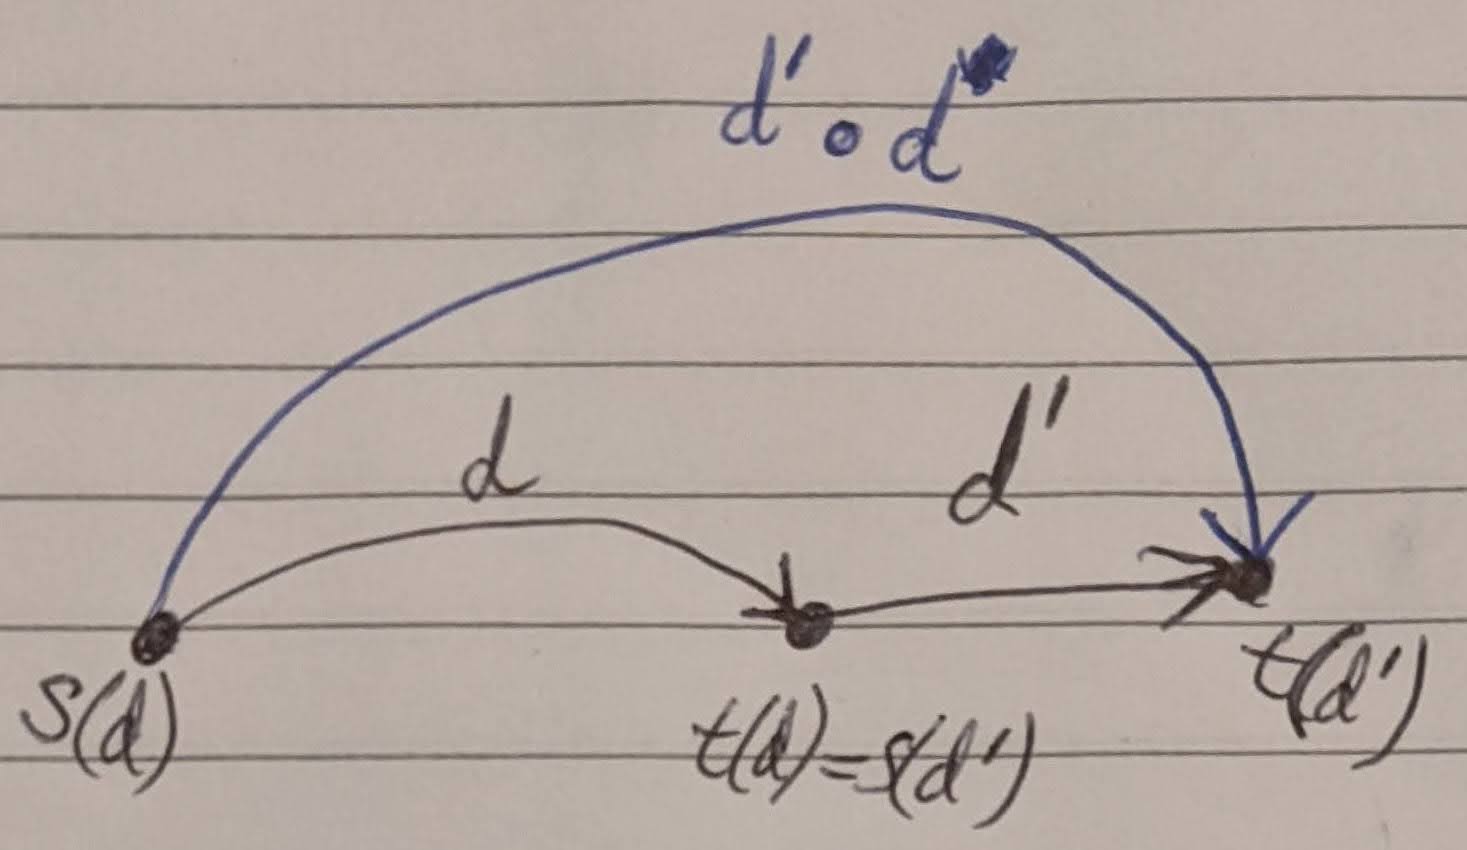 d' ∘ d
d
d'
s(d)
t(d)=s(d')
t(d')